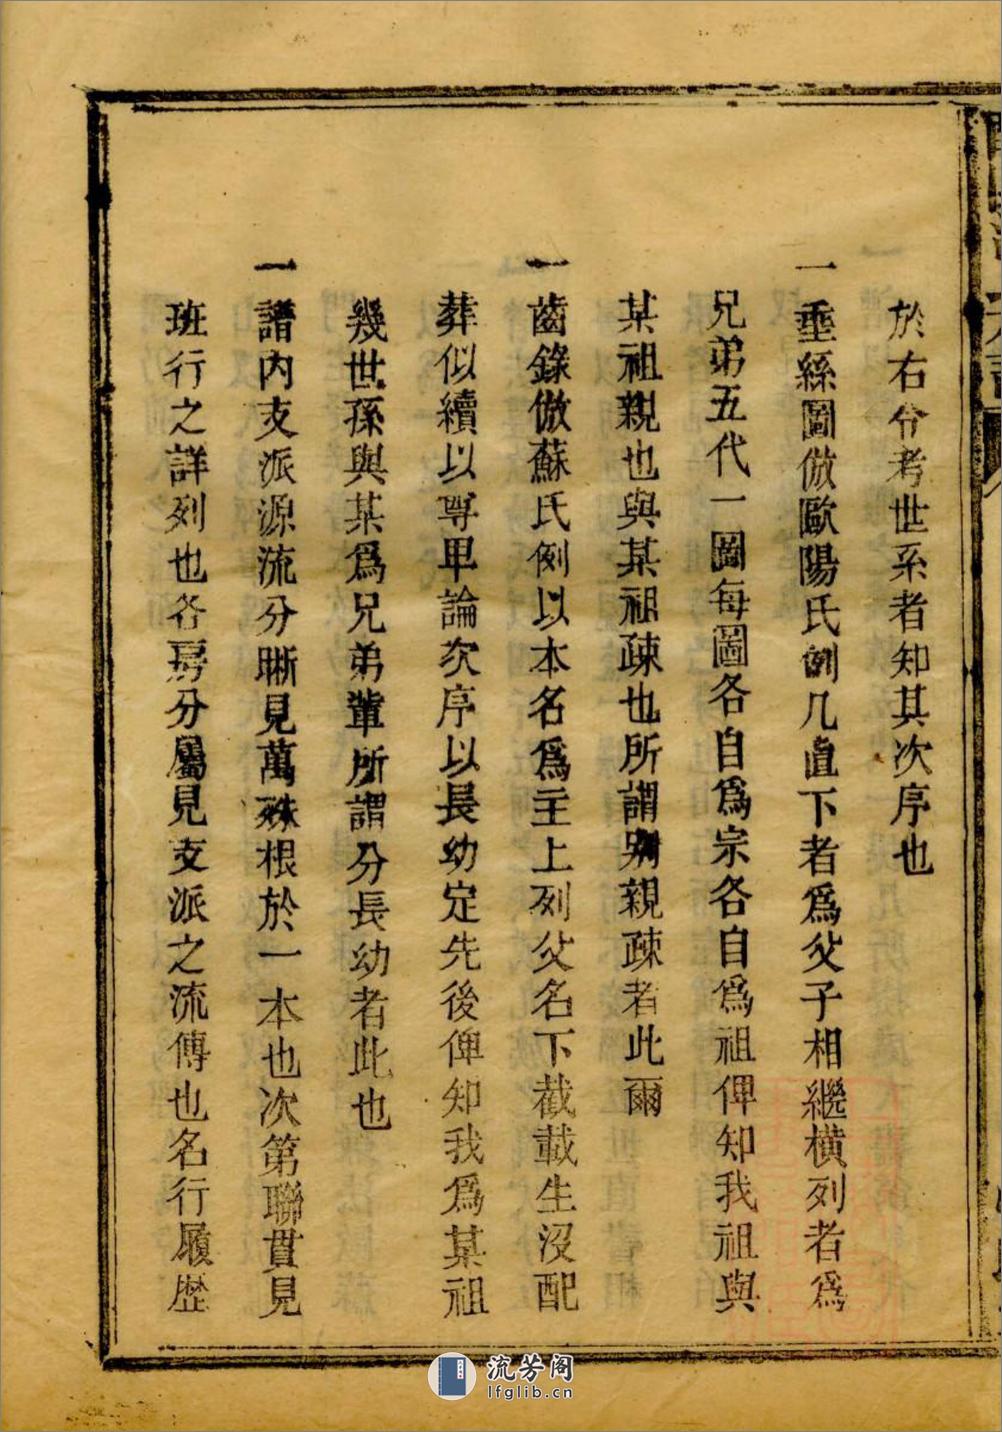 於右分考世系者知其次序也
一垂絲圖倣歐陽氏例凡直下者爲父子相繼橫列者爲
兄弟五代一圖每圖各自爲宗各自爲祖俾知我祖與
某祖親也與某祖疎也所謂別親疎者此爾
一齒錄倣蘇氏例以本名爲主上列父名下截載生沒配
葬似續以尊卑論次序以長幼定先後俾知我爲某祖
幾世孫與某爲兄弟輩所謂分長幼者此也
一譜內支派源流分晰見萬殊根於一本也次第聯貫見
班行之詳列也各房分屬見支派之流傳也名行履歷
流芳阁
lfglib.cn